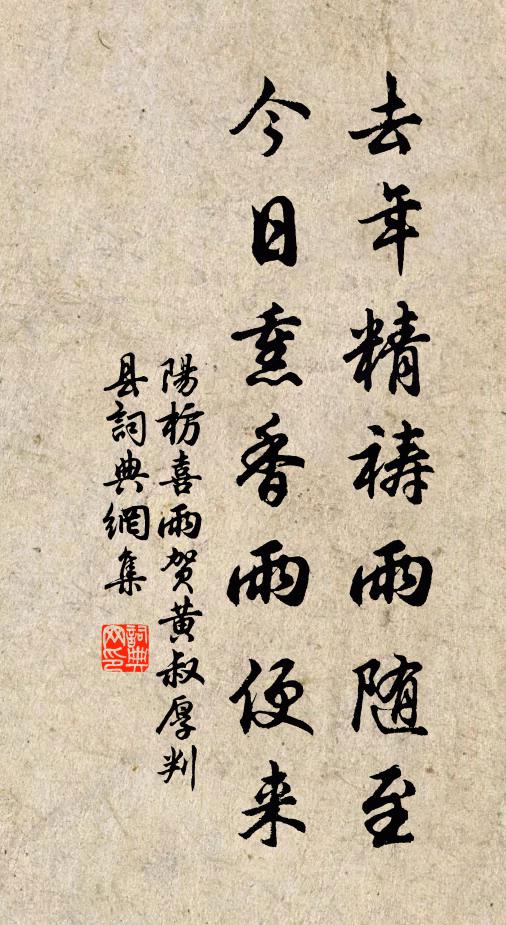 去年精祷雨随至
今日熏香雨便来
陽枋喜雨贺黄叔厚判
县詞典網集
詞典
网印